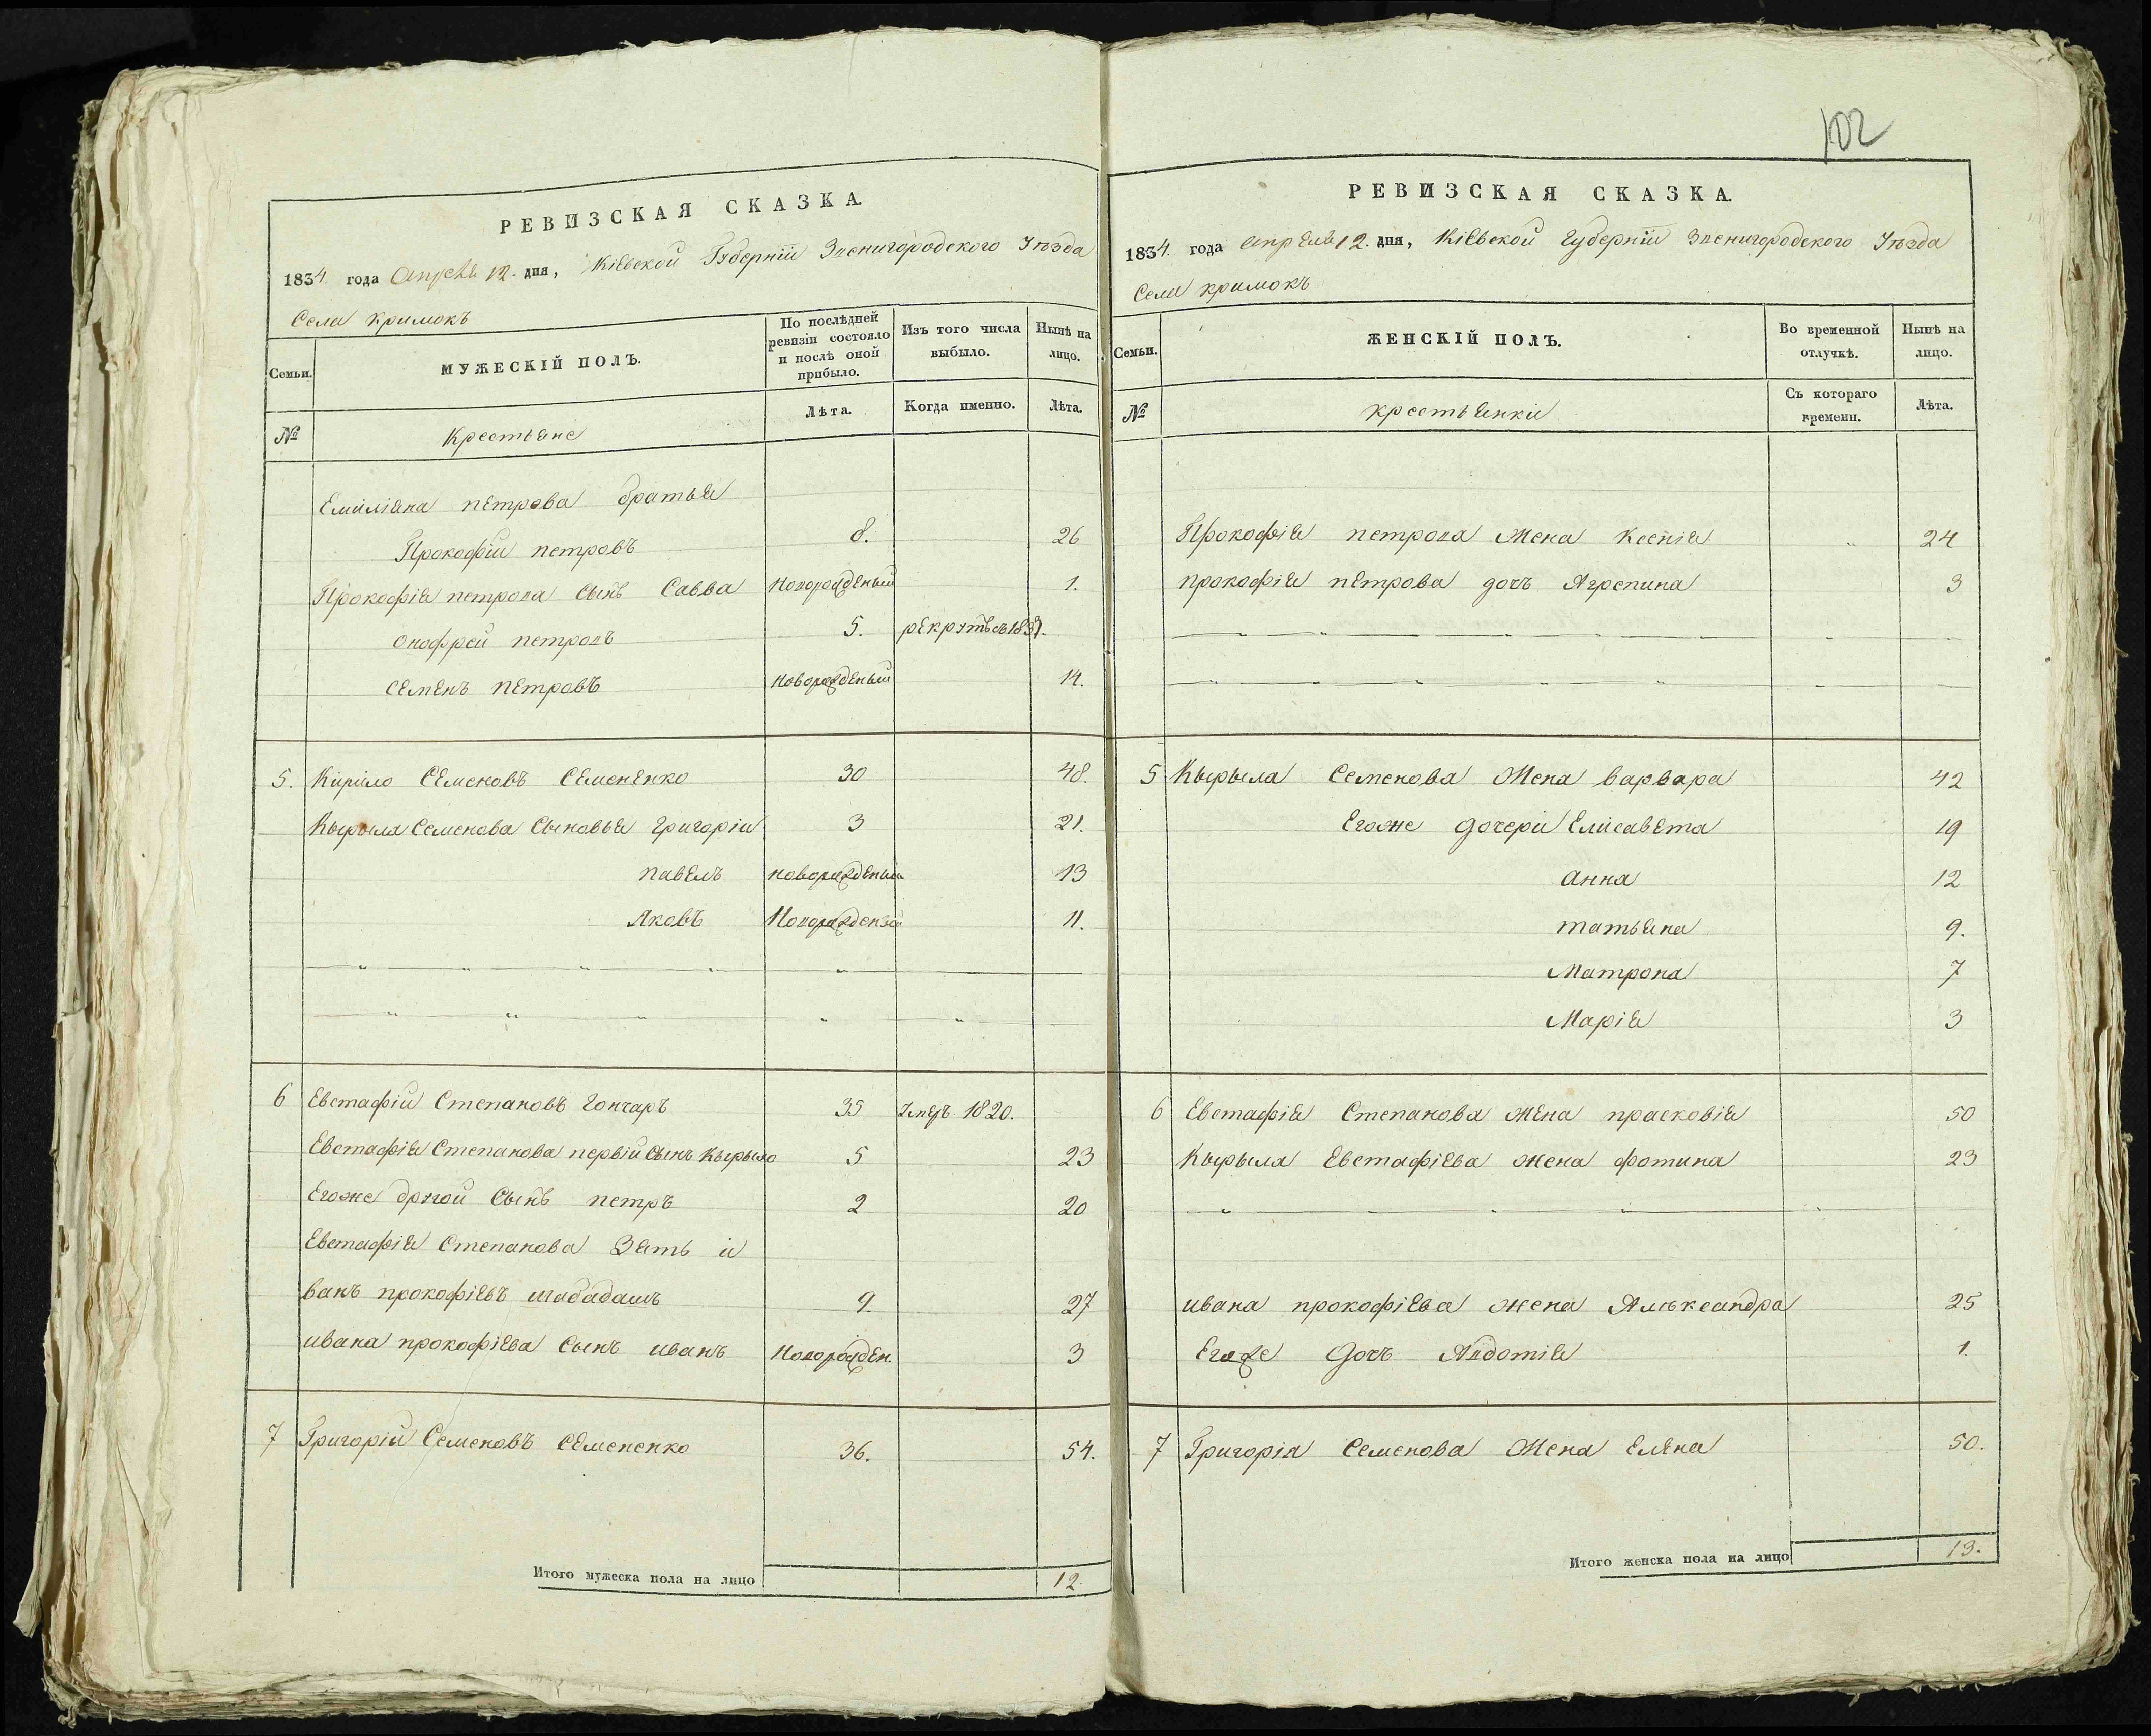 102
РЕВИЗСКАЯ СКАЗКА.
1834. года Апреля 12. дня, Кіевской Губерніи Звенигородского Уезда
Села кримокъ
Семьи. МУЖЕСКІЙ ПОЛЪ. По послѣдней ревизіи состояло и послѣ оной прибыло. Изъ того числа выбыло. Нынѣ на лицо.
№ Крестьяне Лѣта. Когда именно. Лѣта.
Емиліяна петрова братья
Прокофій петровъ 8. 26
Прокофія петрова сынъ Савва новорожденый 1.
Онофрей петровъ 5. рекрутъ съ 1831.
семенъ петровъ новорожденый 14.
5. Кирило Семеновъ Семененко 30 48.
Кырыла Семенова Сыновья григорій 3 21.
павелъ новорожденый 13
Яковъ Новорожденый 11.
6 Евстафій Степановъ гончаръ 35 умеръ 1820.
Евстафія Степанова первій сынъ Кырыло 5 23
Егоже другой Сынъ петръ 2 20
Евстафія Степанова Зять и
ванъ прокофіевъ шабадашъ 9. 27
ивана прокофіева Сынъ иванъ Новорожден. 3
7 Григорій Семеновъ Семененко 36. 54.
Итого мужеска пола на лицо 12.
РЕВИЗСКАЯ СКАЗКА.
1834. года апреля 12. дня, Кіевской губерніи Звенигородского Уезда
Села кримокъ
Семьи. ЖЕНСКІЙ ПОЛЪ. Во временной отлучкѣ. Нынѣ на лицо.
№ крестьянки Съ котораго времени. Лѣта.
Прокофія петрова Жена Ксенія 24
прокофія петрова дочъ Агрепина 3
5 Кырыла Семенова Жена варвара 42
Егоже дочери Елисавета 19
анна 12
татьяна 9.
Матрона 7
Марія 3
6 Евстафія Степанова жена прасковія 50
Кырыла Евстафіева жена фотина 23
ивана прокофіева жена Алѣксандра 25
Егоже дочъ Авдотія 1.
7 Григорія Семенова Жена елена 50.
Итого женска пола на лицо 13.